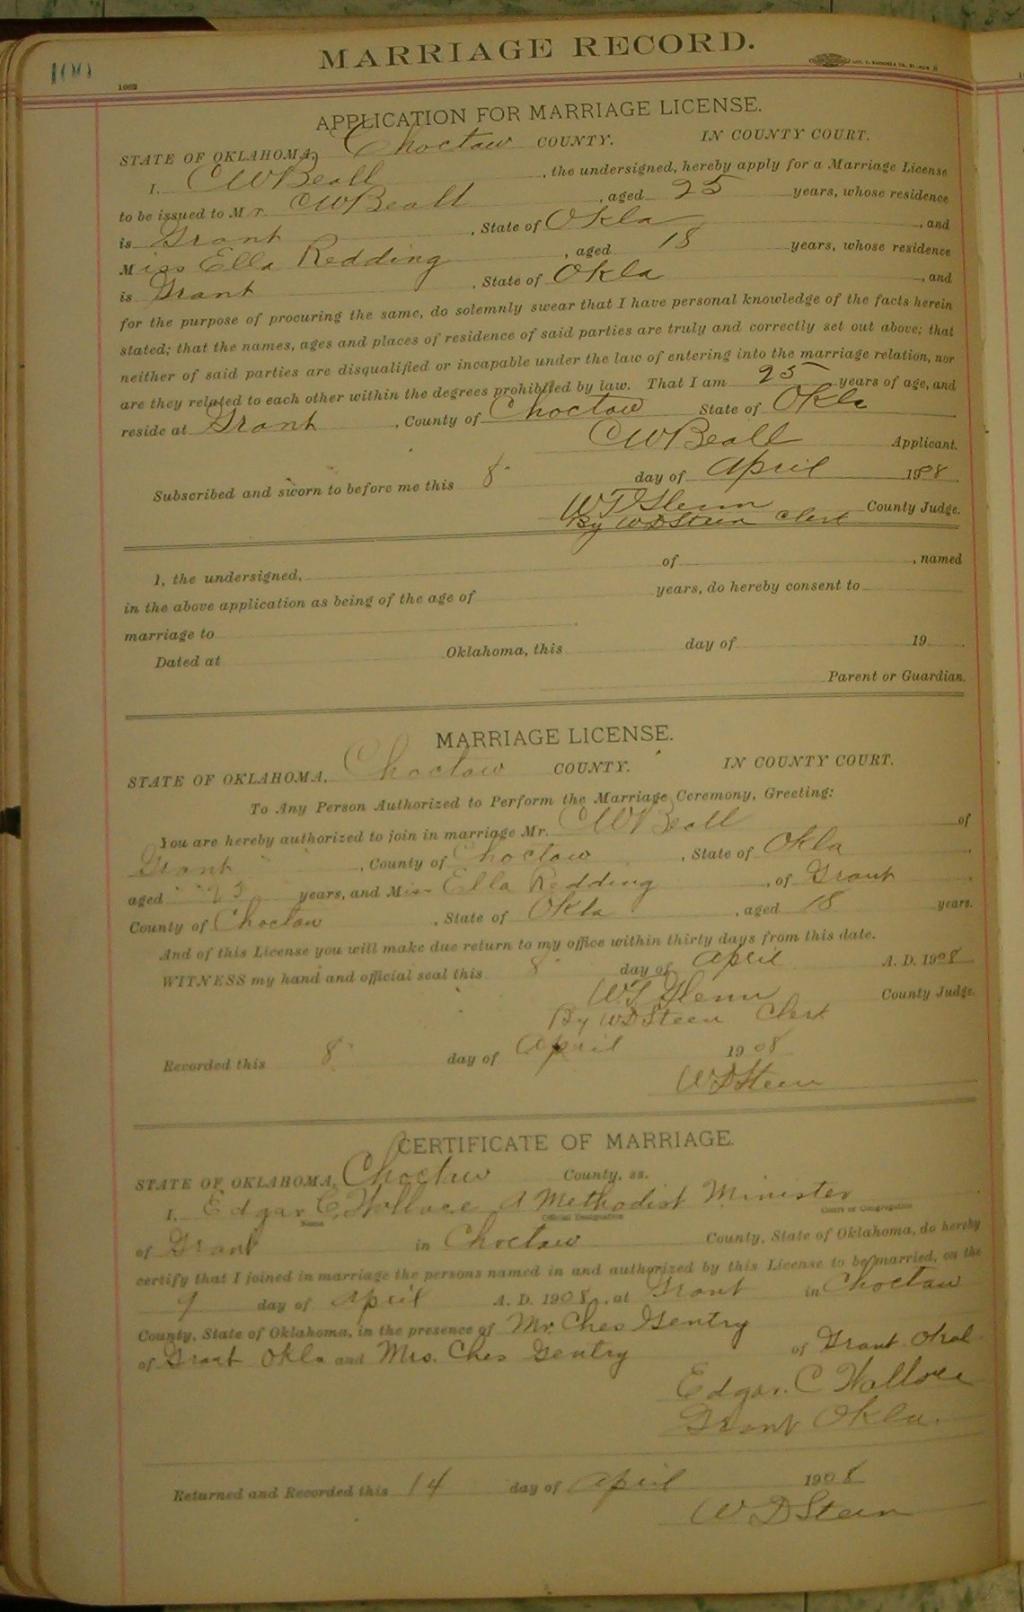 100
MARRIAGE RECORD.
1002
APPLICATION FOR MARRIAGE LICENSE.
STATE OF OKLAHOMA, Choctaw COUNTY. IN COUNTY COURT.
I, CW Beall, the undersigned, hereby apply for a Marriage License
to be issued to Mr CW Beall, aged 25 years, whose residence
is Grant, State of Okla, and
Miss Ella Redding, aged 18 years, whose residence
is Grant, State of Okla, and
for the purpose of procuring the same, do solemnly swear that I have personal knowledge of the facts herein
stated; that the names, ages and places of residence of said parties are truly and correctly set out above; that
neither of said parties are disqualified or incapable under the law of entering into the marriage relation, nor
are they related to each other within the degrees prohibited by law. That I am 25 years of age, and
reside at Grant, County of Choctaw State of Okla
CW Beall Applicant.
Subscribed and sworn to before me this 8 day of April 1908
WT Glenn County Judge.
By WD Steen Clerk
I, the undersigned, of , named
in the above application as being of the age of years, do hereby consent to
marriage to
Dated at Oklahoma, this day of 19
Parent or Guardian.
MARRIAGE LICENSE.
STATE OF OKLAHOMA, Choctaw COUNTY. IN COUNTY COURT.
To Any Person Authorized to Perform the Marriage Ceremony, Greeting:
You are hereby authorized to join in marriage Mr. CW Beall of
Grant, County of Choctaw, State of Okla,
aged 25 years, and Miss Ella Redding, of Grant,
County of Choctaw, State of Okla, aged 18 years.
And of this License you will make due return to my office within thirty days from this date.
WITNESS my hand and official seal this 8 day of April A. D. 1908
WT Glenn County Judge.
By WD Steen Clerk
Recorded this 8 day of April 1908
WD Steen
CERTIFICATE OF MARRIAGE.
STATE OF OKLAHOMA, Choctaw County, ss.
I, Edgar C. Wallace A Methodist Minister
Name Official Designation Court or Congregation
of Grant in Choctaw County, State of Oklahoma, do hereby
certify that I joined in marriage the persons named in and authorized by this License to be married, on the
9 day of April A. D. 1908, at Grant in Choctaw
County, State of Oklahoma, in the presence of Mr. Ches Gentry
of Grant Okla and Mrs. Ches Gentry of Grant Okal
Edgar. C Wallace
Grant Okla.
Returned and Recorded this 14 day of April 1908
W D Steen